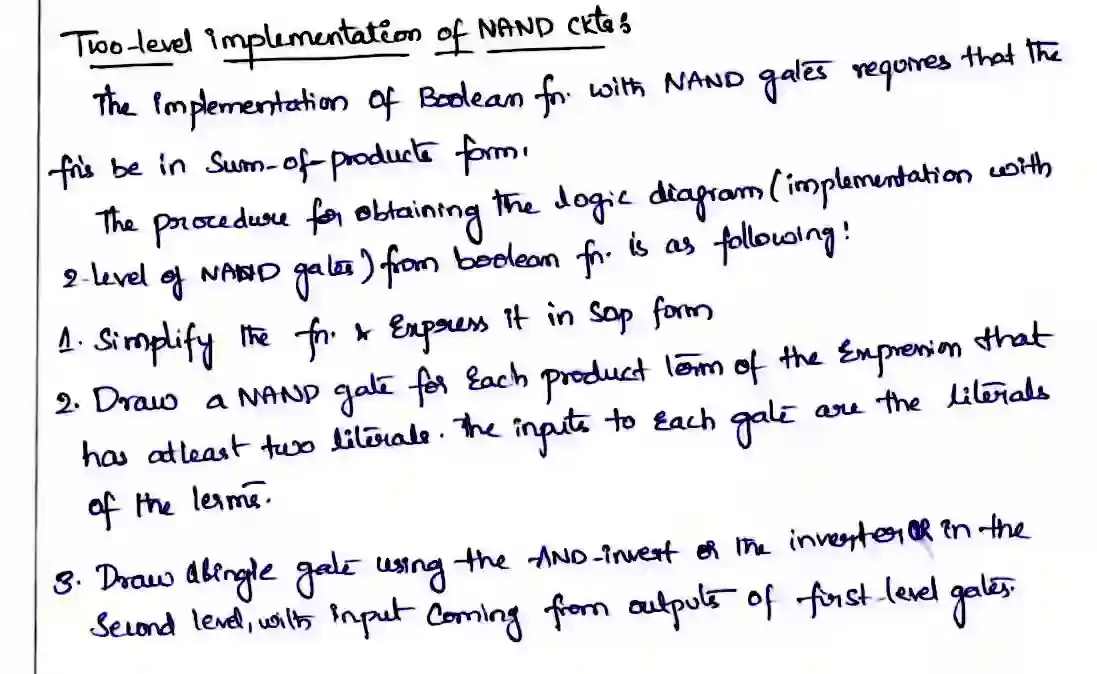 Two-level implementation of NAND ckts
The implementation of Boolean fn. with NAND gates requires that the
fn's be in Sum-of-products form.
The procedure for obtaining the logic diagram (implementation with
2-level of NAND gates) from boolean fn. is as following:
1. Simplify the fn. & Express it in SOP form
2. Draw a NAND gate for Each product term of the Expression that
has atleast two literals. The inputs to Each gate are the literals
of the terms.
3. Draw a single gate using the AND-invert or the invert OR in the
Second level, with input Coming from outputs of first-level gates.